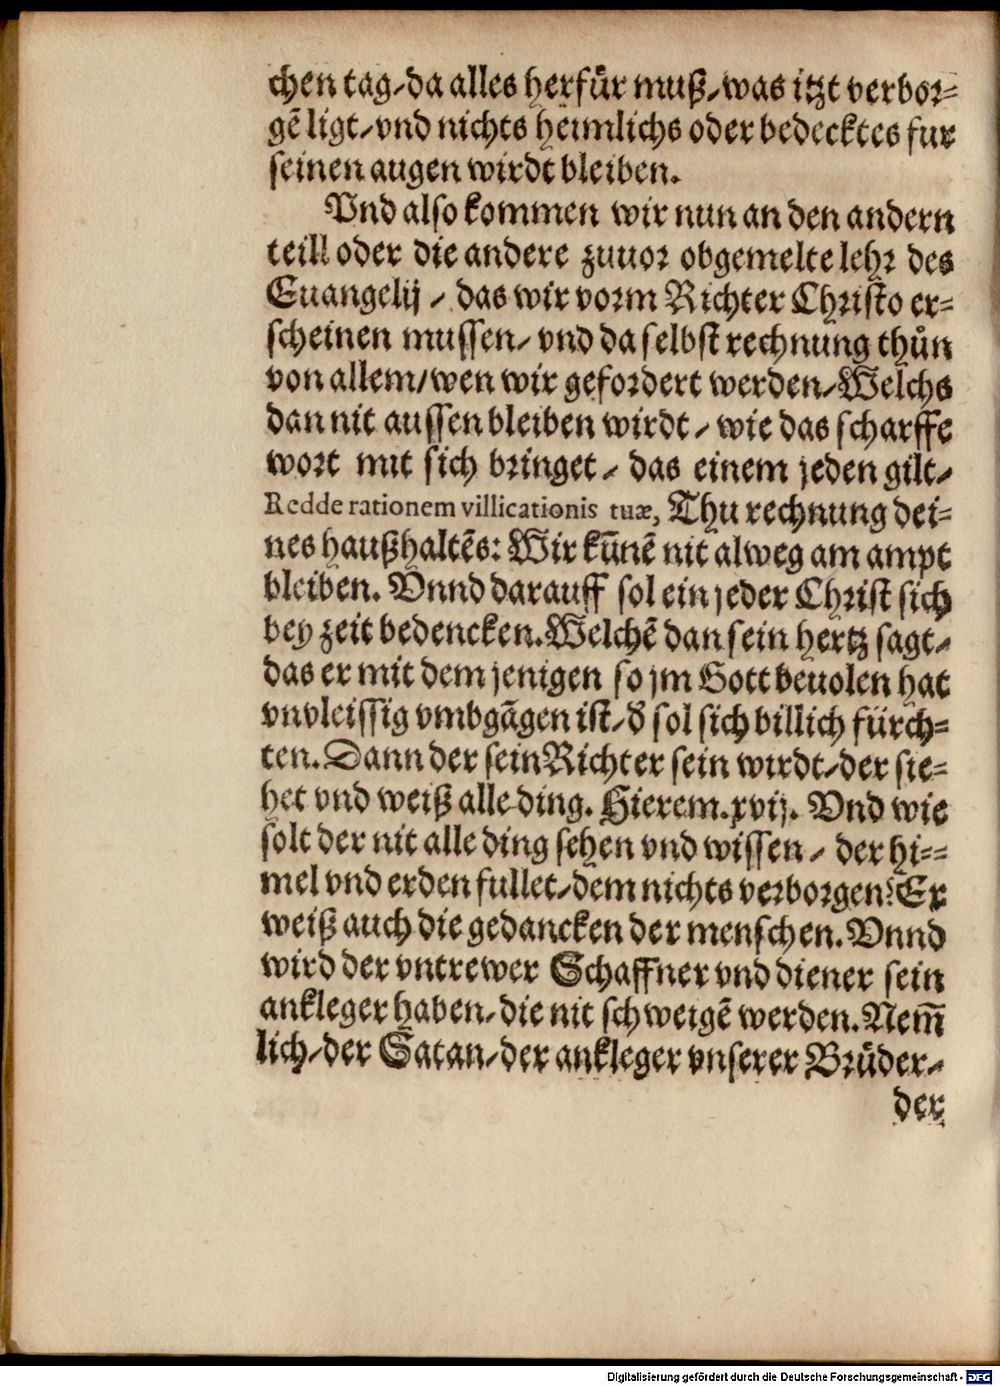 chen tag/ da alles herfür muß/ was itzt verbor=
gē ligt/ vnd nichts heimlichs oder bedecktes fur
seinen augen wirdt bleiben.
Vnd also kommen wir nun an den andern
teill oder die andere zuuor obgemelte lehr des
Euangelij / das wir vorm Richter Christo er=
scheinen mussen/ vnd da selbst rechnung thůn
von allem/ wen wir gefordert werden/ Welchs
dan nit aussen bleiben wirdt / wie das scharffe
wort mit sich bringet / das einem jeden gilt/
Redde rationem villicationis tuæ, Thu rechnung dei=
nes haußhaltēs: Wir kün̄ē nit alweg am ampt
bleiben. Vnnd darauff sol ein jeder Christ sich
bey zeit bedencken. Welchē dan sein hertz sagt/
das er mit dem jenigen so jm Gott beuolen hat
vnvleissig vmbgāgen ist/ d̄ sol sich billich fürch=
ten. Dann der sein Richter sein wirdt/ der sie=
het vnd weiß alle ding. Hierem. xvij. Vnd wie
solt der nit alle ding sehen vnd wissen / der hi==
mel vnd erden fullet/ dem nichts verborgen? Er
weiß auch die gedancken der menschen. Vnnd
wird der vntrewer Schaffner vnd diener sein
ankleger haben/ die nit schweigē werden. Nem̄
lich/ der Satan/ der ankleger vnserer Brüder/
der
Digitalisierung gefördert durch die Deutsche Forschungsgemeinschaft - DFG